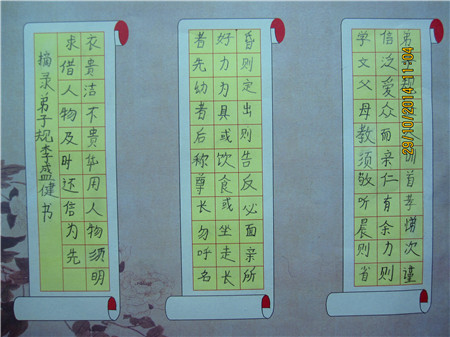 弟子规圣人训首孝悌次谨
信泛爱众而亲仁有余力则
学文父母教须敬听晨则省
昏则定出则告反必面亲所
好力为具或饮食或坐走长
者先幼者后称尊长勿呼名
衣贵洁不贵华用人物须明
求借人物及时还信为先
摘录弟子规李盛健书
29/10/2014 11:04